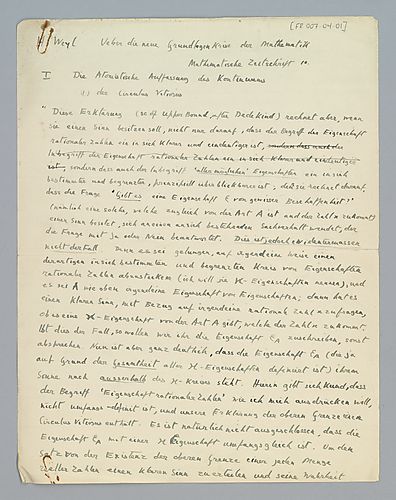 [FR 007-04-01]
Weyl Ueber die neue Grundlagenkrise der Mathematik
Mathematische Zeitschrift 10.
I Die Atomistische Auffassung des Kontinuums
(1) der Circulus Vitiosus
"Diese Erklärung (sc. of Upper Bound, after Dedekind) rechnet aber, wenn
sie einen Sinn besitzen soll, nicht nur darauf, dass der Begriff der Eigenschaft
rationaler Zahlen ein in sich klarer und eindeutiger ist, sondern dass auch der
Inbegriff der Eigenschaft rationaler Zahlen ein in sich klarer und eindeutiger
ist, sondern dass auch der Inbegriff "aller möglichen" Eigenschaften ein in sich
bestimmter und begrenzter, prinzipiell überblickbarer ist; denn sie rechnet darauf,
dass die Frage "Gibt es eine Eigenschaft (von gewisser Beschaffenheit)?"
(nämlich eine solche, welche zugleich von der Art A ist und der Zahl x zukommt)
einen Sinn besitzt, sich an einen an sich bestehenden Sachverhalt wendet, der
die Frage mit ja oder Nein beantwortet. Dies ist jedoch
nicht der Fall. Denn es sei gelungen, auf irgendeine Weise einen
derartigen in sich bestimmten und begrenzten Kreis von Eigenschaften
rationaler Zahlen abzustecken (ich will sie K-Eigenschaften nennen), und
es sei A wie oben irgendeine Eigenschaft von Eigenschaften; dann hat es
einen klaren Sinn, mit Bezug auf irgendeine rationale Zahl x zu fragen,
ob es eine K-Eigenschaft von der Art A gibt, welche der Zahl x zukommt.
Ist dies der Fall, so wollen wir ihr die Eigenschaft EA zuschreiben, sonst
absprechen. Nun ist aber ganz deutlich, dass die Eigenschaft EA (die ja
auf Grund der Gesamtheit aller K-Eigenschaften definiert ist) ihrem
Sinne nach ausserhalb des K-Kreises steht. Hierin gibt sich kund, dass
der Begriff "Eigenschaft rationaler Zahlen" wie ich mich ausdrücken will,
nicht umfangs-definit ist, und unsere Erklärung der oberen Grenze einen
Circulus Vitiosus enthält. Es ist natürlich nicht ausgeschlossen, dass die
Eigenschaft EA mit einer K-Eigenschaft umfangsgleich ist. Um dem
Satz von der Existenz der oberen Grenze einer jeden Menge
reeller Zahlen einen klaren Sinn zu erteilen und seine Wahrheit